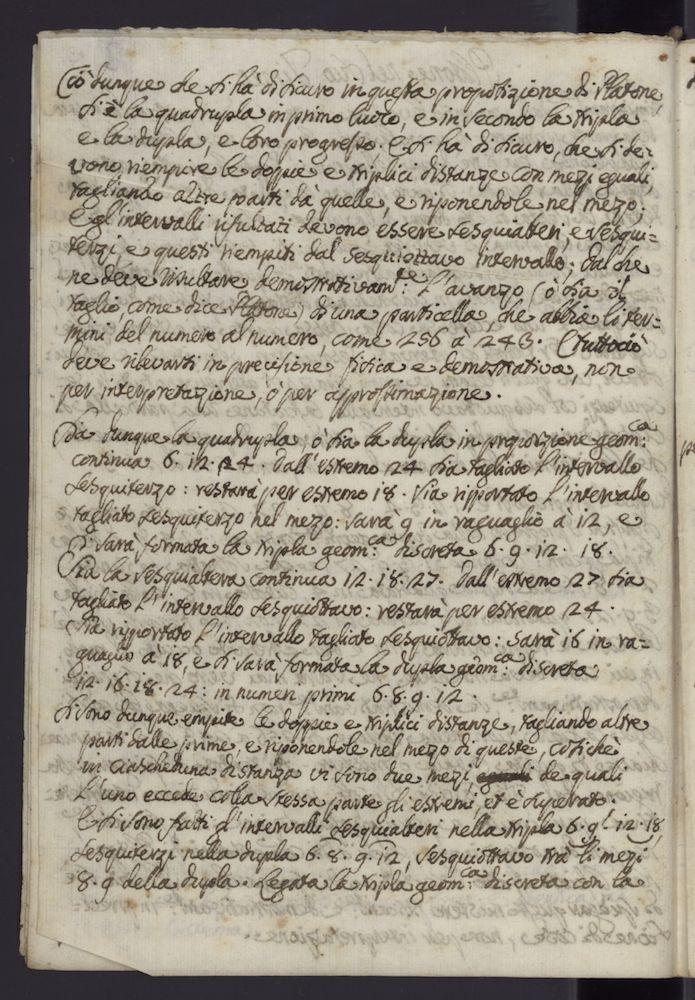 Ciò dunque che si hà di sicuro in questa proposizione di Platone,
si è la quadrupla in primo luoco, e in secondo la tripla
e la dupla, e loro progresso. E si hà di sicuro, che si de-
vono riempire le doppie e triplici distanze con mezi eguali,
tagliando altre parti dà quelle, e riponendole nel mezo;
e gl'intervalli risultati devono essere sesquialteri, e sesqui-
terzi, e questi riempiti dal sesquiottavo intervallo; dal che
ne deve risultare demostrativam:te l'avanzo (ò sia il
taglio, come dice Platone) di una particella, che abbia li ter-
mini del numero al numero, come 256 à 243. Tuttociò
deve rilevarsi in precisione fisica e demostrativa, non
per interpretazione, ò per approssimazione.
Sia dunque la quadrupla, ò sia la dupla in proporzione geom:ca
continua 6. 12. 24. dall'estremo 24 sia tagliato l'intervallo
sesquiterzo: restarà per estremo 18. Sia ripportato l'intervallo
tagliato sesquiterzo nel mezo: sarà 9 in raguaglio à 12, e
si sarà formata la tripla geom:ca discreta 6. 9. 12. 18.
Sia la sesquialtera continua 12. 18. 27. dall'estremo 27 sia
tagliato l'intervallo sesquiottavo: restarà per estremo 24.
Sia ripportato l'intervallo tagliato sesquiottavo: sarà 16 in ra-
guaglio à 18, e si sarà formata la dupla geom:ca discreta
12. 16. 18. 24: in numeri primi 6. 8. 9. 12.
Si sono dunque empite le doppie e triplici distanze, tagliando altre
parti dalle prime, e riponendole nel mezo di queste, cosiche
in ciascheduna distanza vi sono due mezi, de quali
l'uno eccede colla stessa parte gli estremi, et è superato.
E si sono fatti gl'intervalli sesquialteri nella tripla 6. 9. 12. 18,
sesquiterzi nella dupla 6. 8. 9. 12, sesquiottavo trà li mezi
8. 9 della dupla. Legata la tripla geom:ca discreta con la